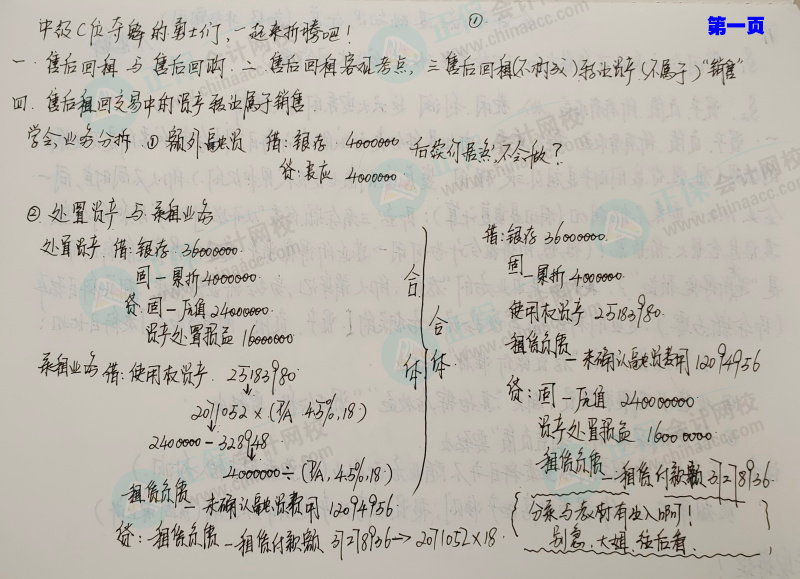 第一页
①
中级C位夺魁的勇士们，一起来折腾吧！
一. 售后回租与售后回购. 二. 售后回租客观考点. 三 售后回租(不对义)转让资产(不属于)"销售"
四. 售后租回交易中的资产转让属于销售.
学会业务分析 ① 额外融资 借：银存 4000000 后续付居然不会做？
贷：长应 4000000
② 处置资产与承租业务
处置资产 借：银存 36000000
固—累折 4000000
贷：固—原值 24000000
资产处置损益 16000000
承租业务 借：使用权资产 25183980
2071052×(P/A 4.5%,18)
2400000-328948
4000000÷(P/A,4.5%,18)
租赁负债—未确认融资费用 12094956
贷：租赁负债—租赁付款额 37278936→2071052×18
合
体
合
体
借：银存 36000000
固—累折 4000000
使用权资产 25183980
租赁负债
—未确认融资费用 12094956
贷：固—原值 24000000
资产处置损益 16000000
租赁负债
—租赁付款额 37278936.
分录与教材有出入啊！
别急，大姐，往后看.
正保会计网校
www.chinaacc.com